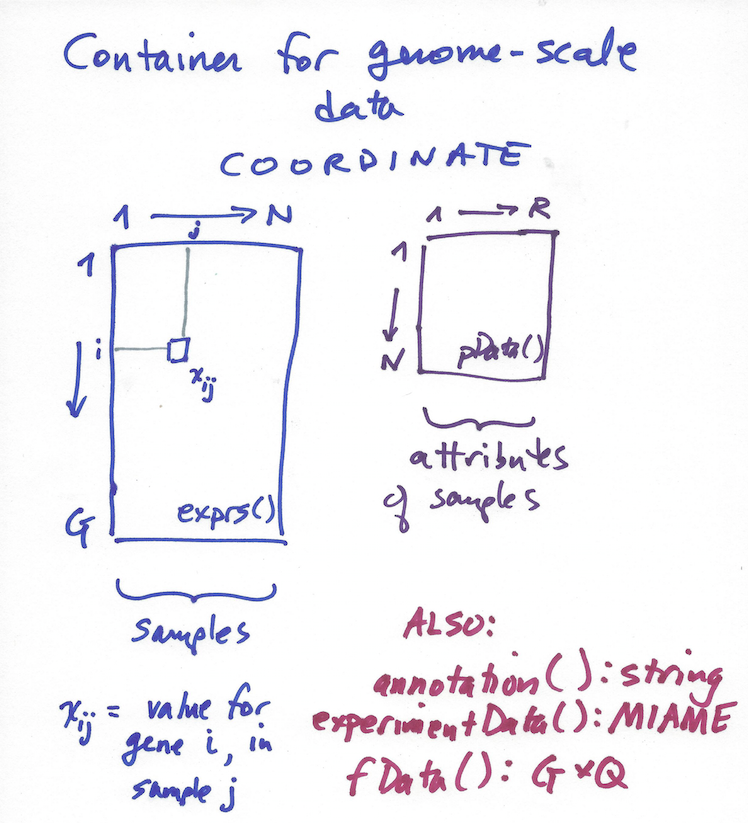 Container for genome-scale
data
COORDINATE
1 → N
j
1
i
x_ij
G
exprs()
samples
x_ij = value for
gene i, in
sample j
1 → R
1
N
pData()
attributes
of samples
ALSO:
annotation(): string
experimentData(): MIAME
fData(): G×Q